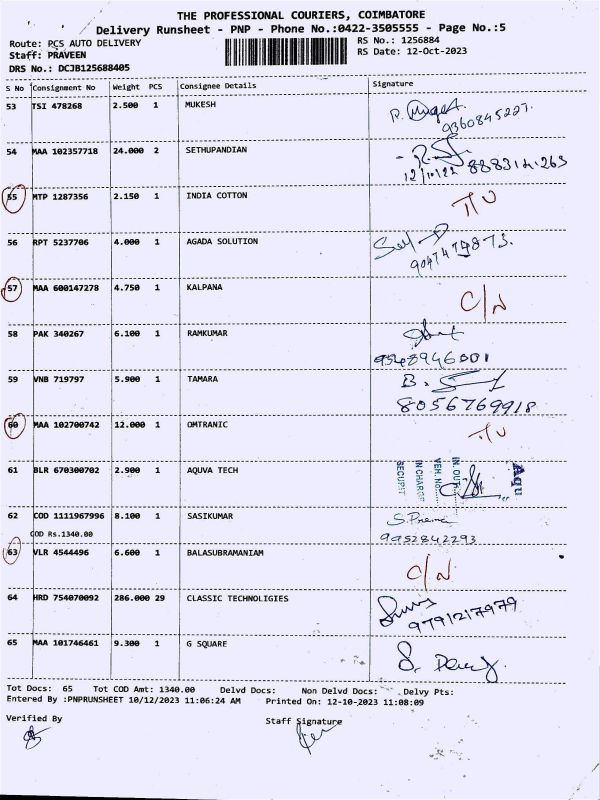 THE PROFESSIONAL COURIERS, COIMBATORE
Delivery Runsheet - PNP - Phone No.:0422-3505555 - Page No.:5
Route: PCS AUTO DELIVERY
RS No.: 1256884
Staff: PRAVEEN
RS Date: 12-Oct-2023
DRS No.: DCJB125688405
S No Consignment No Weight PCS Consignee Details Signature
53 TSI 478268 2.500 1 MUKESH
9360845227.
54 MAA 102357718 24.000 2 SETHUPANDIAN
12/10/22
55 MTP 1287356 2.150 1 INDIA COTTON
56 RPT 5237706 4.000 1 AGADA SOLUTION
57 MAA 600147278 4.750 1 KALPANA C/N
58 PAK 340267 6.100 1 RAMKUMAR
59 VNB 719797 5.900 1 TAMARA
B.
8056769918
60 MAA 102700742 12.000 1 OMTRANIC
61 BLR 670300702 2.900 1 AQUVA TECH
Aqu
IN. OUT
VEH. NO
IN CHARGE
SECURIT
62 COD 1111967996 8.100 1 SASIKUMAR
S.Prema
COD Rs.1340.00
9952842293
63 VLR 4544496 6.600 1 BALASUBRAMANIAM C/N
64 HRD 754070092 286.000 29 CLASSIC TECHNOLIGIES
9791217979
65 MAA 101746461 9.300 1 G SQUARE
Tot Docs: 65 Tot COD Amt: 1340.00 Delvd Docs: Non Delvd Docs: Delvy Pts:
Entered By :PNPRUNSHEET 10/12/2023 11:06:24 AM Printed On: 12-10-2023 11:08:09
Verified By Staff Signature